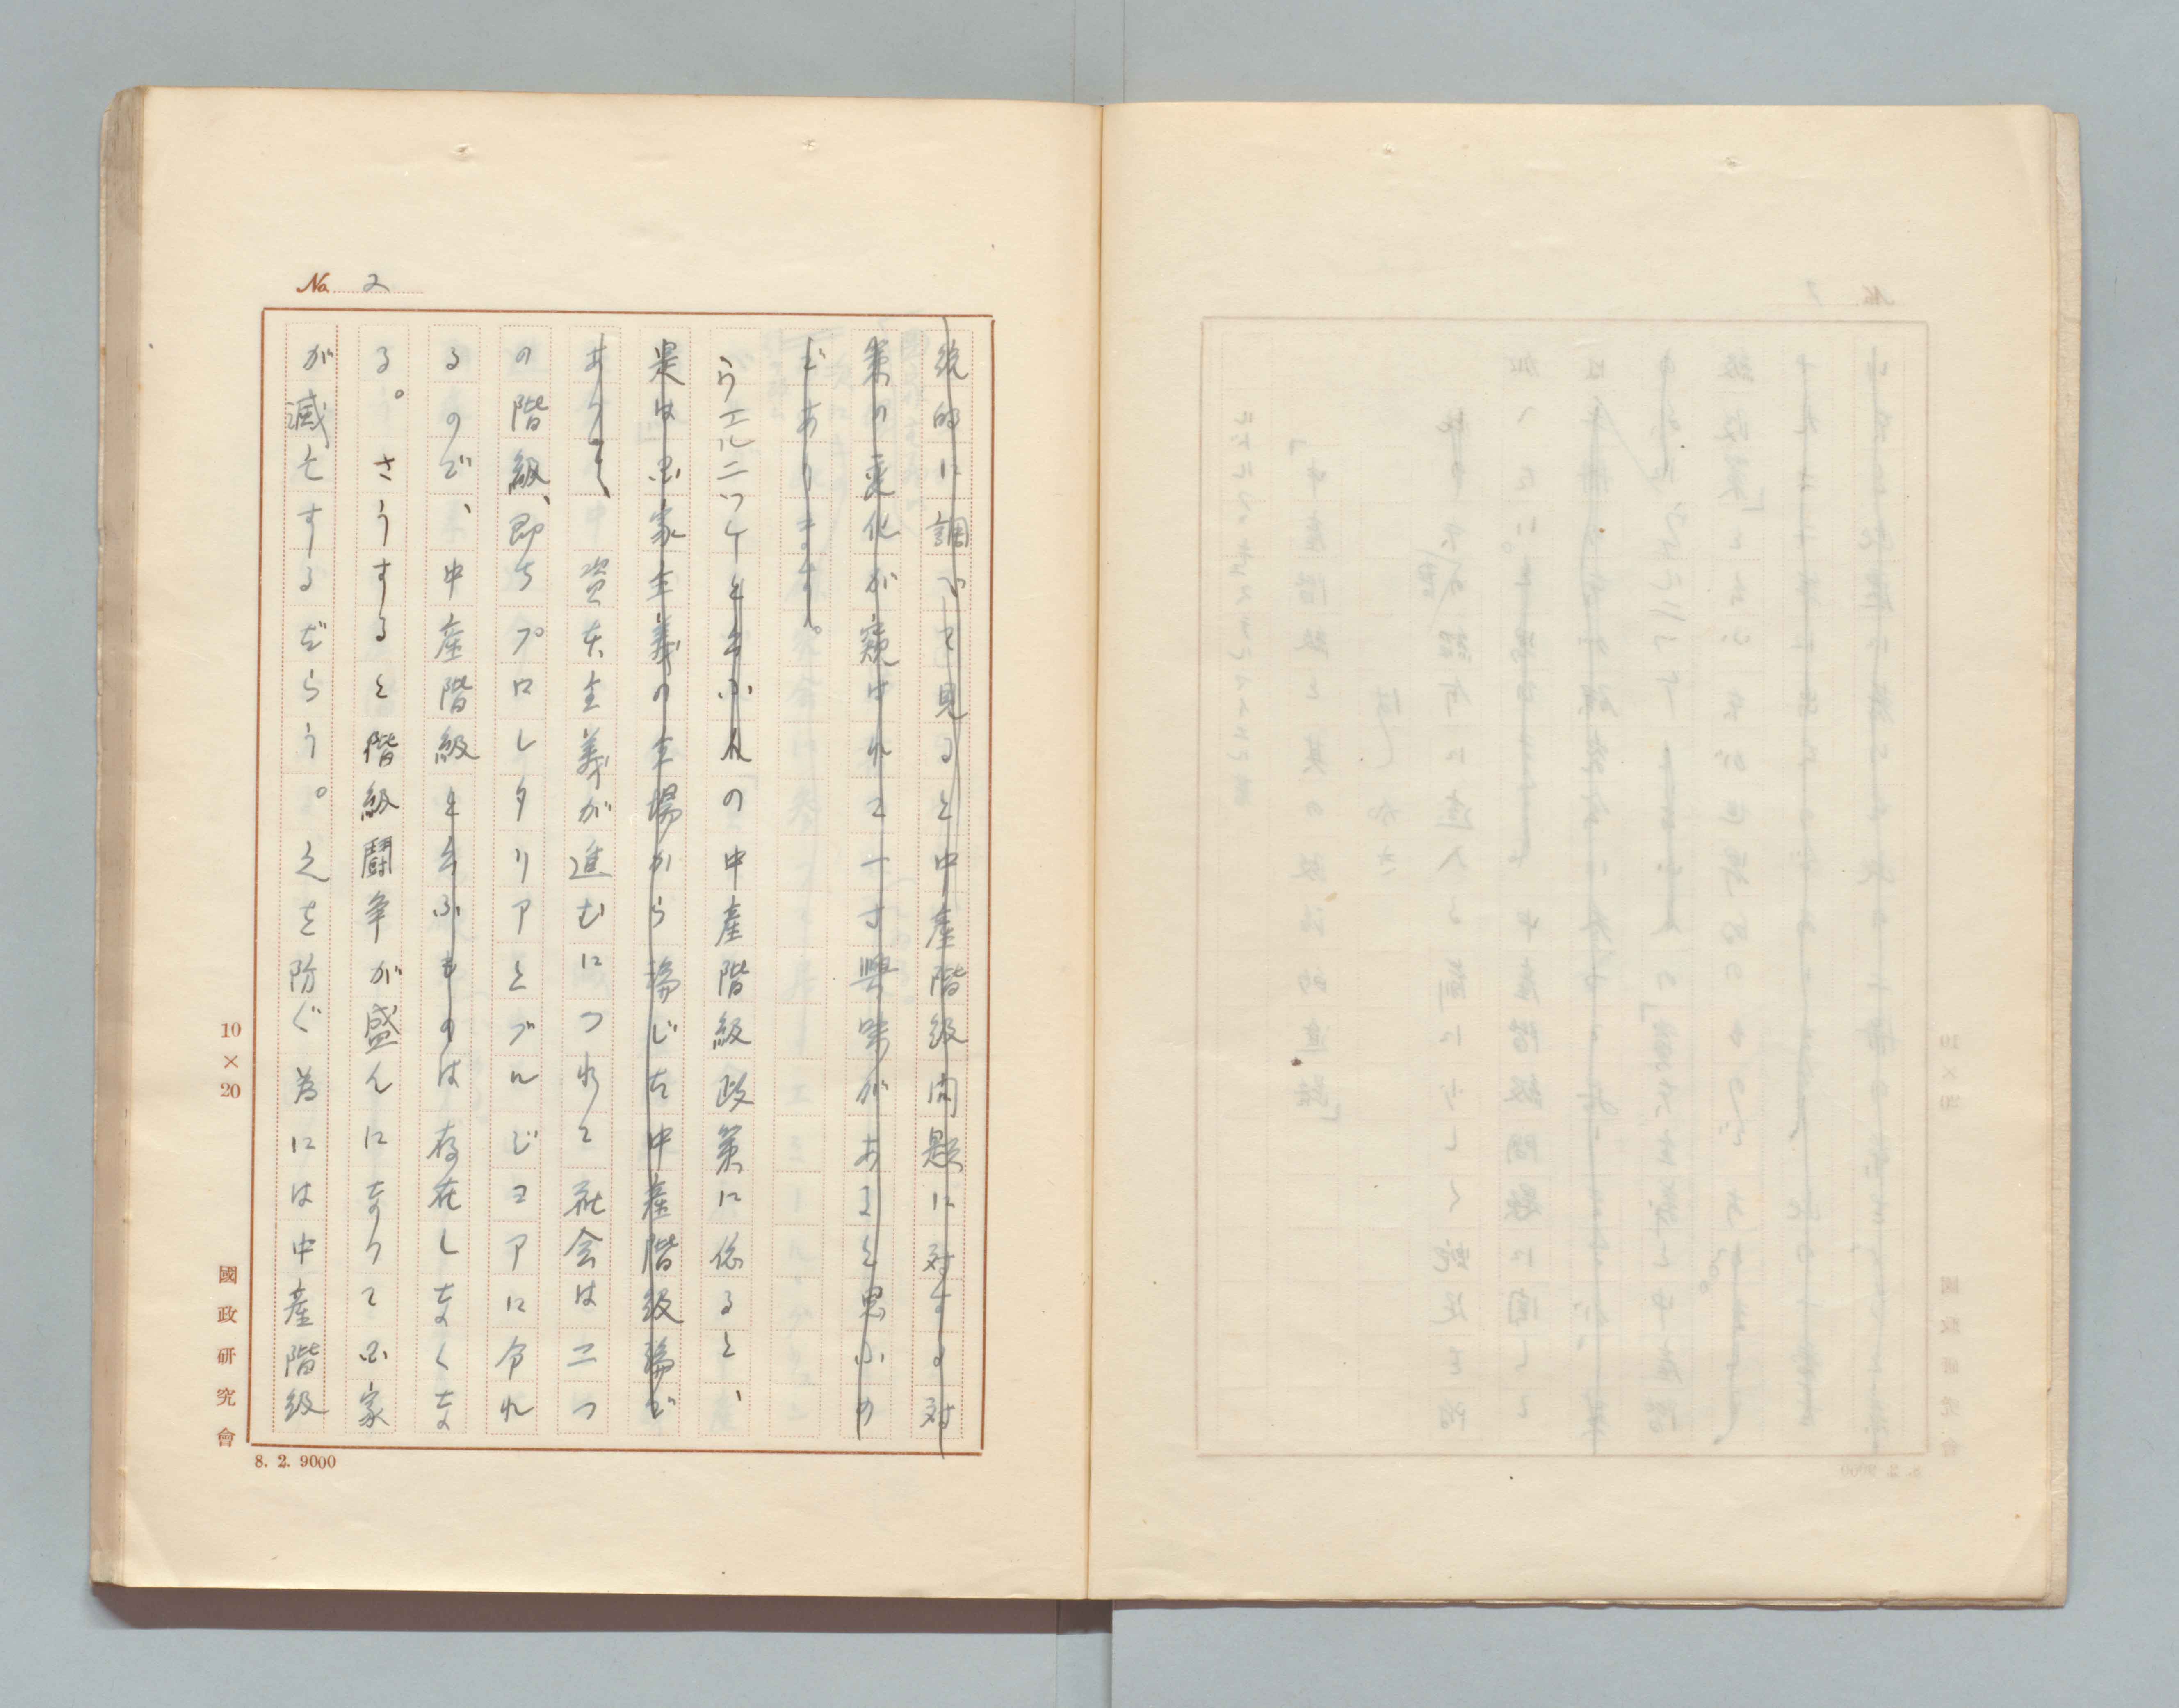 No. 2
統的に調べて見ると中産階級問題に対する対
策の変化が窺はれて一寸興味があると思ふの
であります。
ウエルニツケと云ふ人の中産階級政策に依ると、
是は国家主義の立場から論じた中産階級論で
ありて、資本主義が進むにつれて社会は二つ
の階級、即ちプロレタリアとブルジヨアに分れ
るので、中産階級と云ふものは存在しなくな
る。さうすると階級闘争が盛んになりて国家
が滅亡するだらう。之を防ぐ為には中産階級
10×20
國政研究會
8. 2. 9000